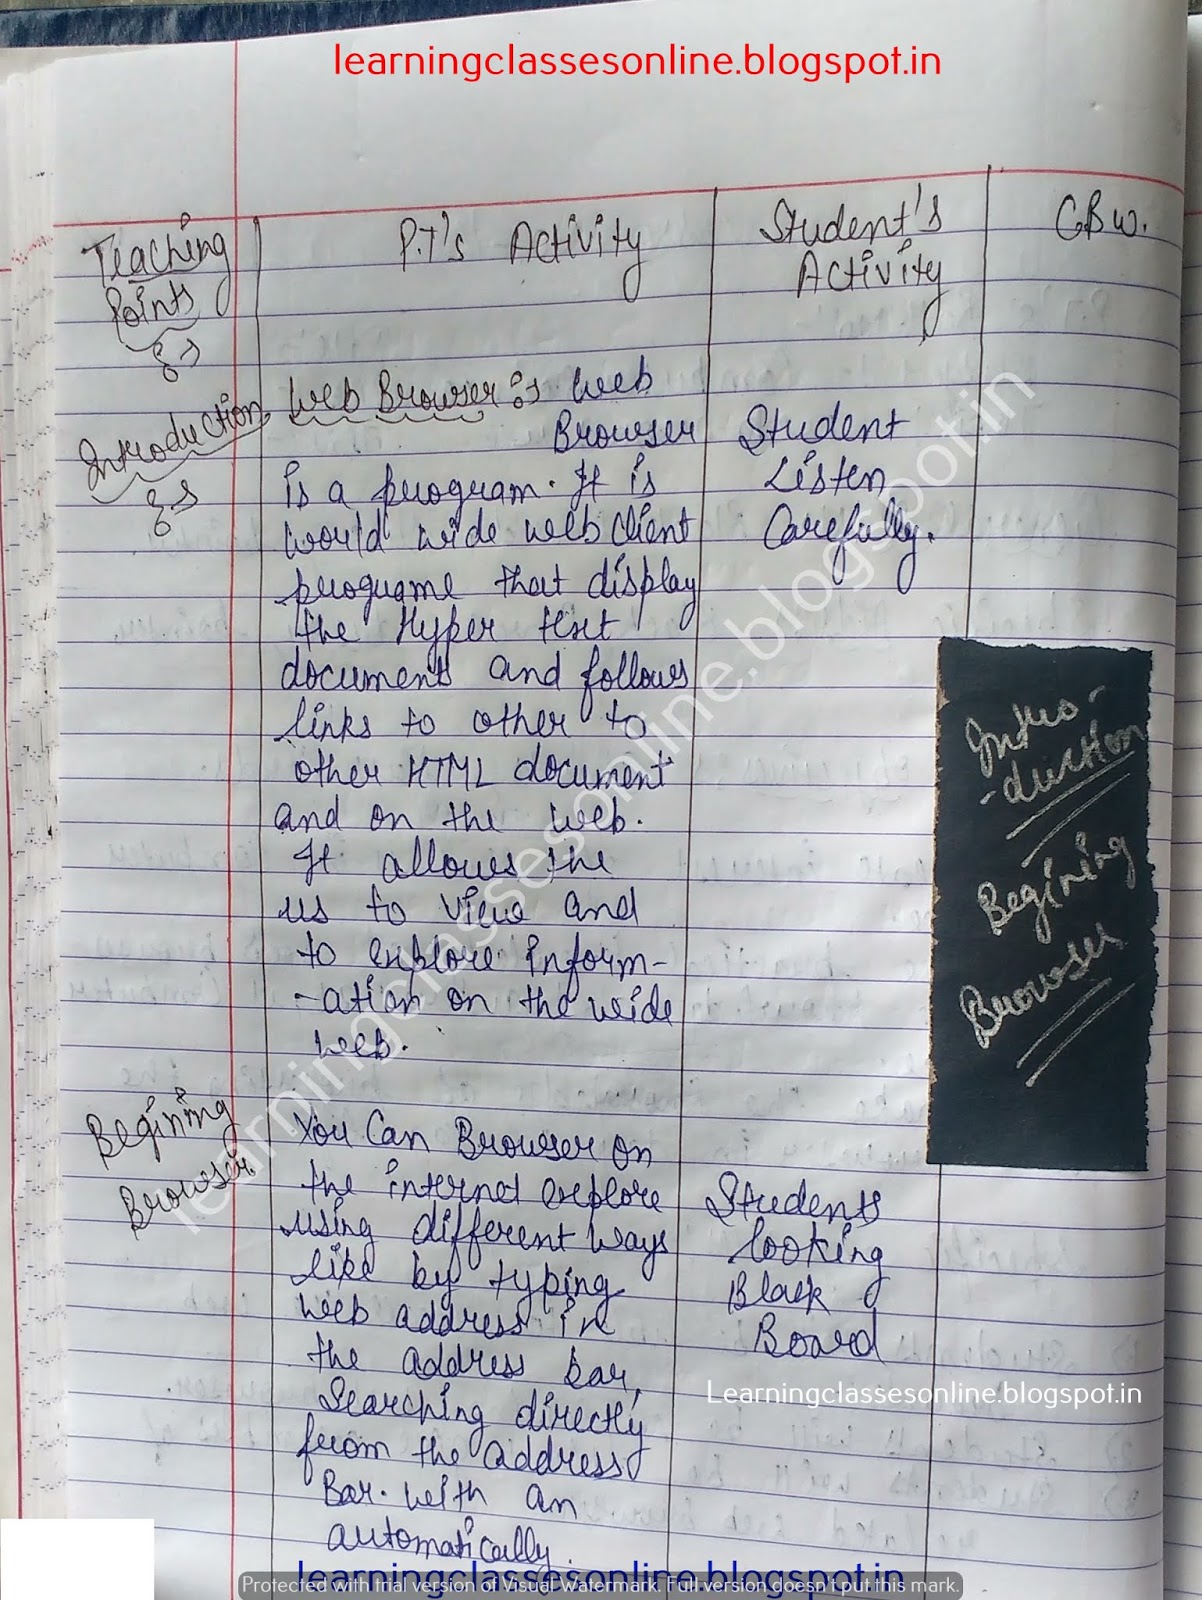 learningclassesonline.blogspot.in
Teaching
Points
P.T's Activity
Student's
Activity
CBW.
Introduction
Web Browser :- Web
Browser
is a program. It is
world wide web client
programe that display
the Hyper text
document and follows
links to other to
other HTML document
and on the web.
It allows the
us to view and
to explore inform-
-ation on the wide
web.
Student
Listen
Carefully.
Intro-
-duction
Begining
Browser
Begining
Browser
You Can Browser on
the internet explore
using different ways
like by typing
web address in
the address bar,
Searching directly
from the address
Bar. with an
automatically.
Students
looking
Black
Board
learningclassesonline.blogspot.in
Learningclassesonline.blogspot.in
learningclassesonline.blogspot.in
Protected with trial version of Visual Watermark. Full version doesn't put this mark.